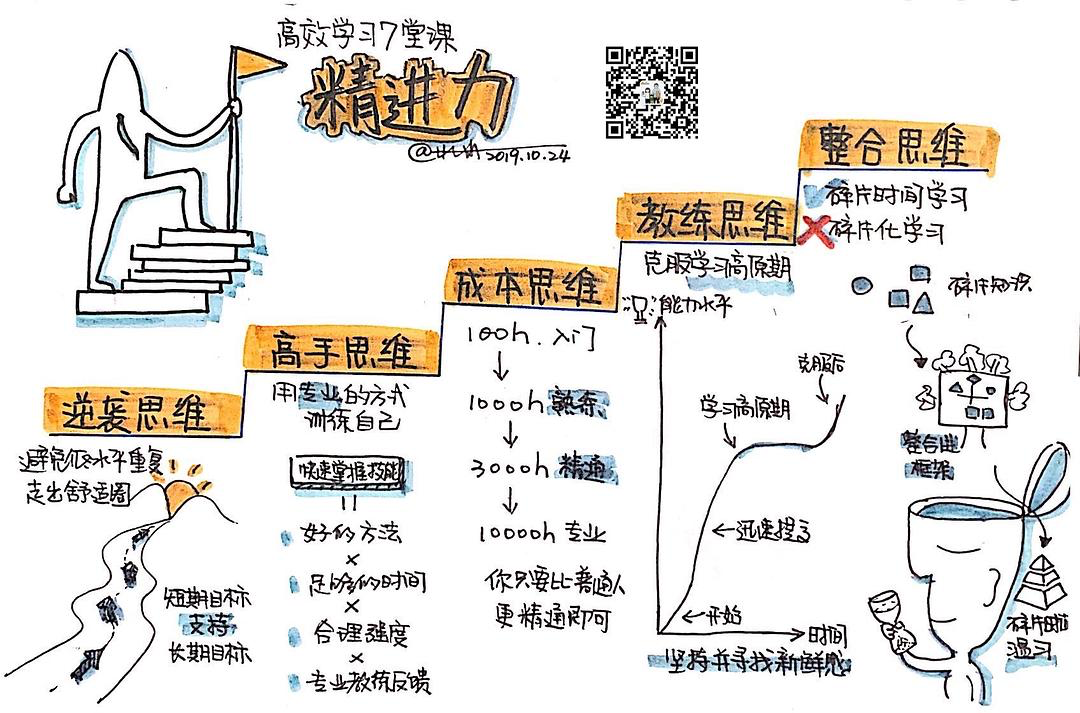 高效学习7堂课
精进力
2019.10.24
逆袭思维
避免低水平重复
走出舒适圈
短期目标
支持
长期目标
高手思维
用专业的方式
训练自己
快速掌握技能
=
好的方法
×
足够的时间
×
合理强度
×
专业教练反馈
成本思维
100h.入门
1000h 熟练
3000h 精通
10000h 专业
你只要比普通人
更精通即可
教练思维
克服学习高原期
能力水平
克服后
学习高原期
迅速提高
开始
时间
坚持并寻找新鲜感
整合思维
碎片时间学习
碎片化学习
碎片知识
整合进
框架
碎片时间
温习